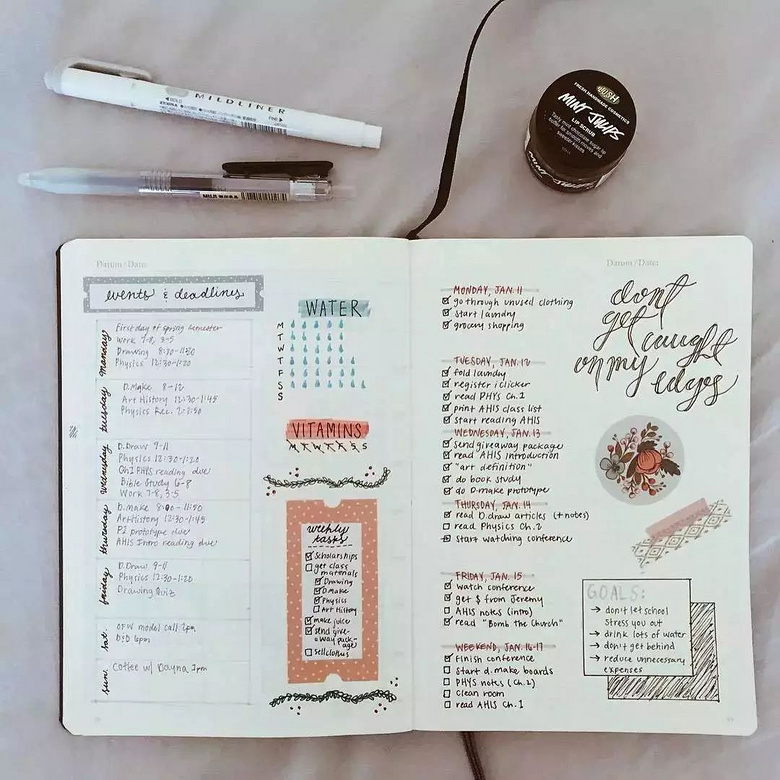 BOLD
ZEBRA
MILDLINER
FINE
MUJI
LUSH
FRESH HANDMADE COSMETICS
MINT JULIPS
LIP SCRUB
MINT JULIPS
Datum/Date:
events & deadlines
monday
First day of spring semester
Work 7-8, 3-5
Drawing 8:20-11:50
Physics 12:30-1:20
tuesday
D.Make 8-12
Art History 12:30-1:45
Physics Rec. 2-2:50
wednesday
D.Draw 9-11
Physics 12:30-1:20
Ch.1 PHYS reading due
Bible Study 6-8
Work 7-8, 3-5
thursday
D.make 8-11:50
Art History 12:30-1:45
P1 prototype due
AHIS Intro reading due
friday
D.Draw 9-11
Physics 12:30-1:20
Drawing Quiz
sat.
OFW model call 2pm
6pm
sun.
Coffee w/ Dayna 2pm
WATER
M
T
W
T
F
S
S
VITAMINS
M T W T F S S
weekly
tasks
Scholarships
get class
materials
Drawing
D.Make
Physics
Art History
make juice
send give-
away pack-
age
sell clothes
Datum/Date:
MONDAY, JAN. 11
go through unused clothing
start laundry
grocery shopping
TUESDAY, JAN. 12
fold laundry
register iclicker
read PHYS Ch.1
print AHIS class list
start reading AHIS
WEDNESDAY, JAN. 13
send giveaway package
read AHIS Introduction
"art definition"
do book study
do D.make prototype
THURSDAY, JAN. 14
read D.draw articles (+notes)
read Physics Ch.2
start watching conference
FRIDAY, JAN. 15
watch conference
get $ from Jeremy
AHIS notes (intro)
read "Bomb the Church"
WEEKEND, JAN. 16-17
finish conference
start d.make boards
PHYS notes (Ch.2)
clean room
read AHIS Ch.1
don't
get caught
on my
edges
GOALS:
→ don't let school
stress you out
→ drink lots of water
→ don't get behind
→ reduce unnecessary
expenses